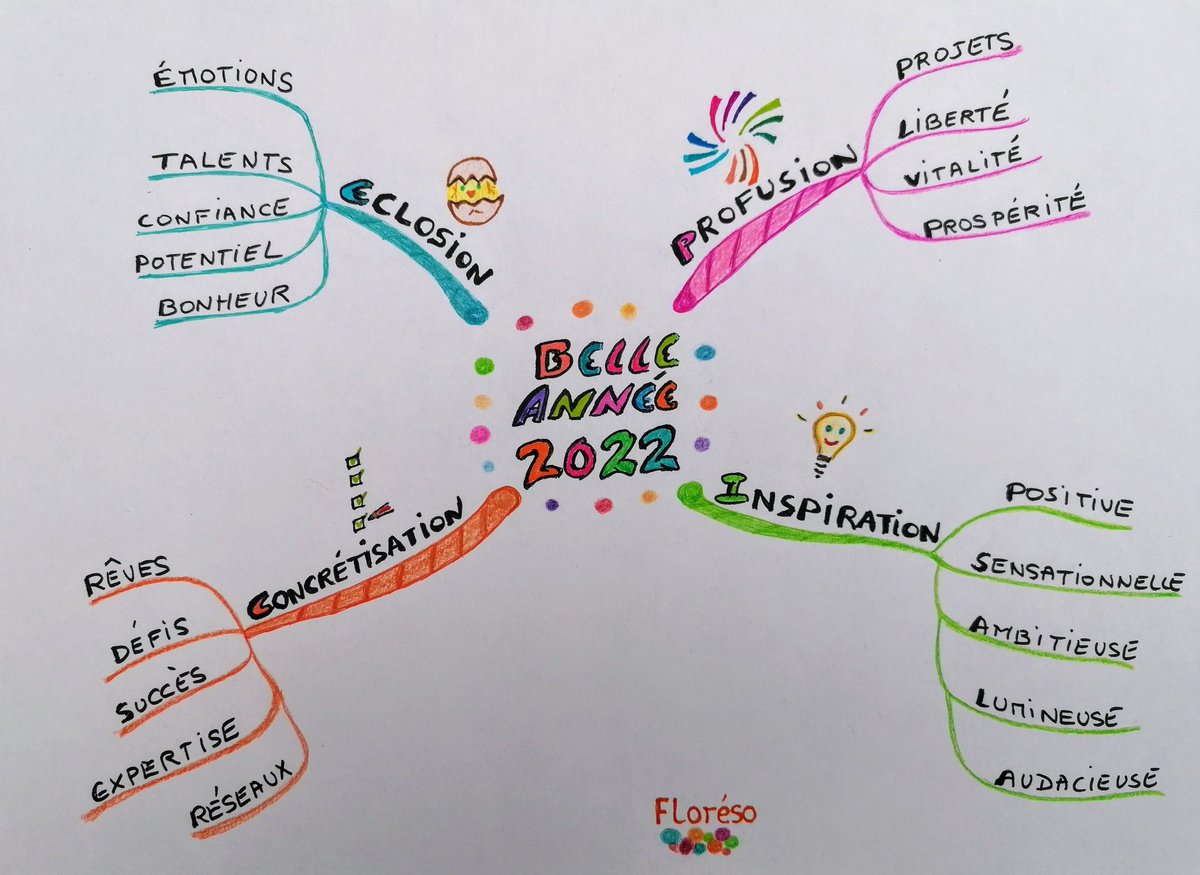 BELLE
ANNÉE
2022
PROFUSION
PROJETS
LIBERTÉ
VITALITÉ
PROSPÉRITÉ
INSPIRATION
POSITIVE
SENSATIONNELLE
AMBITIEUSE
LUMINEUSE
AUDACIEUSE
CONCRÉTISATION
RÊVES
DÉFIS
SUCCÈS
EXPERTISE
RÉSEAUX
ECLOSION
ÉMOTIONS
TALENTS
CONFIANCE
POTENTIEL
BONHEUR
Floréso